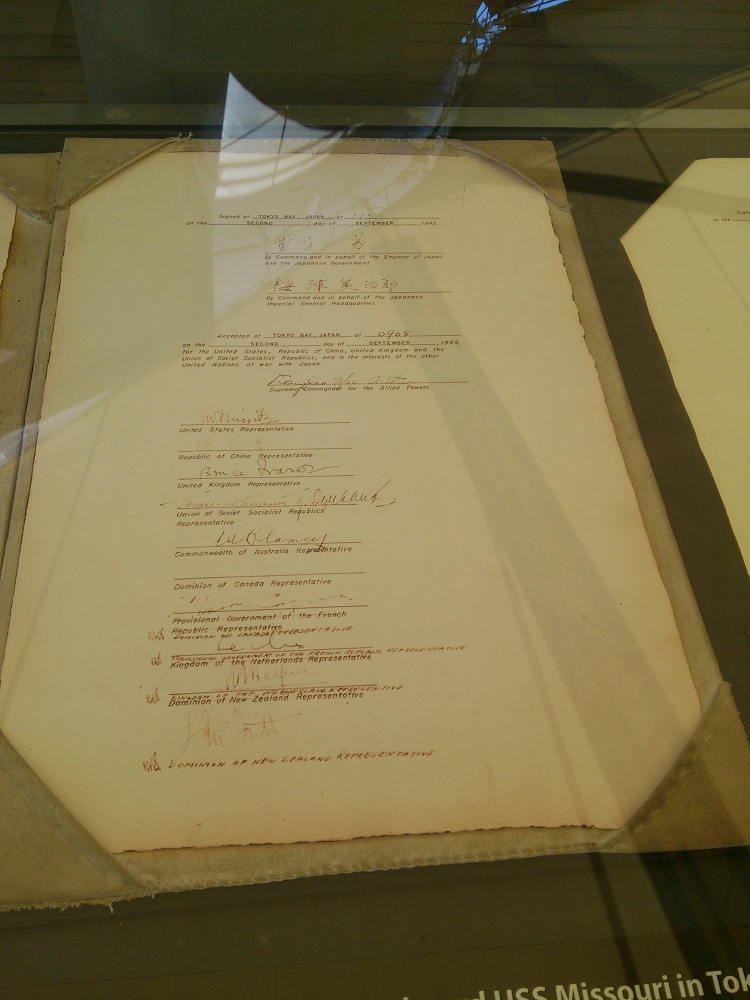 Signed at TOKYO BAY, JAPAN at
on the SECOND day of SEPTEMBER, 1945.
重光 葵
By Command and in behalf of the Emperor of Japan
and the Japanese Government.
梅津美治郎
By Command and in behalf of the Japanese
Imperial General Headquarters.
Accepted at TOKYO BAY, JAPAN at 0908
on the SECOND day of SEPTEMBER, 1945,
for the United States, Republic of China, United Kingdom and the
Union of Soviet Socialist Republics, and in the interests of the other
United Nations at war with Japan.
Douglas MacArthur
Supreme Commander for the Allied Powers.
C W Nimitz
United States Representative
Republic of China Representative
Bruce Fraser
United Kingdom Representative
Union of Soviet Socialist Republics
Representative
T A Blamey
Commonwealth of Australia Representative
Dominion of Canada Representative
Provisional Government of the French
Republic Representative
DOMINION OF CANADA REPRESENTATIVE
PROVISIONAL GOVERNMENT OF THE FRENCH REPUBLIC REPRESENTATIVE
Kingdom of the Netherlands Representative
KINGDOM OF THE NETHERLANDS REPRESENTATIVE
Dominion of New Zealand Representative
DOMINION OF NEW ZEALAND REPRESENTATIVE
USS Missouri in Tok